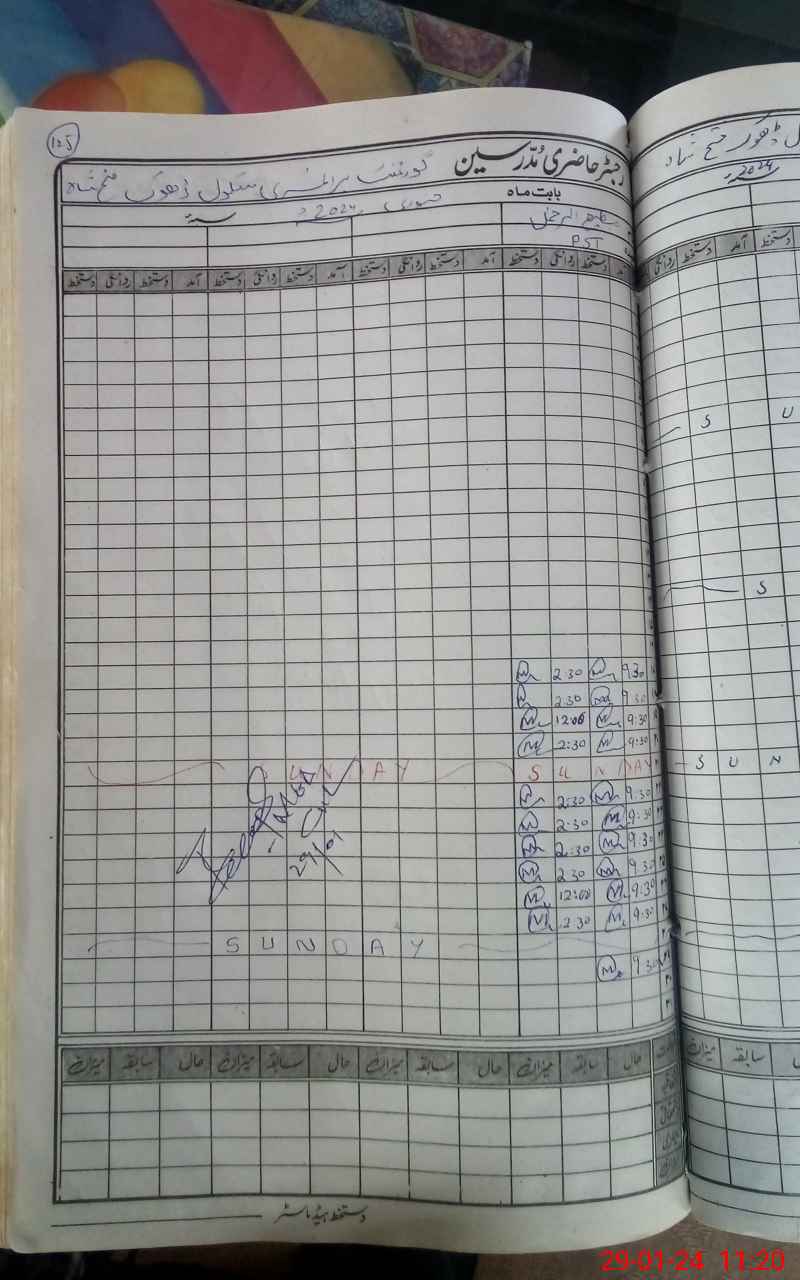 125
رجسٹر حاضری مُدّرسین گورنمنٹ پرائمری سکول ڈھوک فتح شاہ
بابت ماہ جنوری 2024ء سنہ
PST
آمد دستخط روانگی دستخط آمد دستخط روانگی دستخط آمد دستخط روانگی دستخط آمد دستخط روانگی دستخط
9:30 2:30
9:30 2:30
9:30 12:00
9:30 2:30
SUNDAY SUNDAY
9:30 2:30
9:30 2:30
9:30 2:30
9:30 2:30
9:30 12:00
9:30 2:30
29/01
SUNDAY
9:30
حال سابقہ میزان حال سابقہ میزان حال سابقہ میزان حال سابقہ میزان
دستخط ہیڈ ماسٹر
2024ء
دستخط آمد دستخط روانگی
S U
S
S U N
سابقہ میزان
29-01-24 11:20